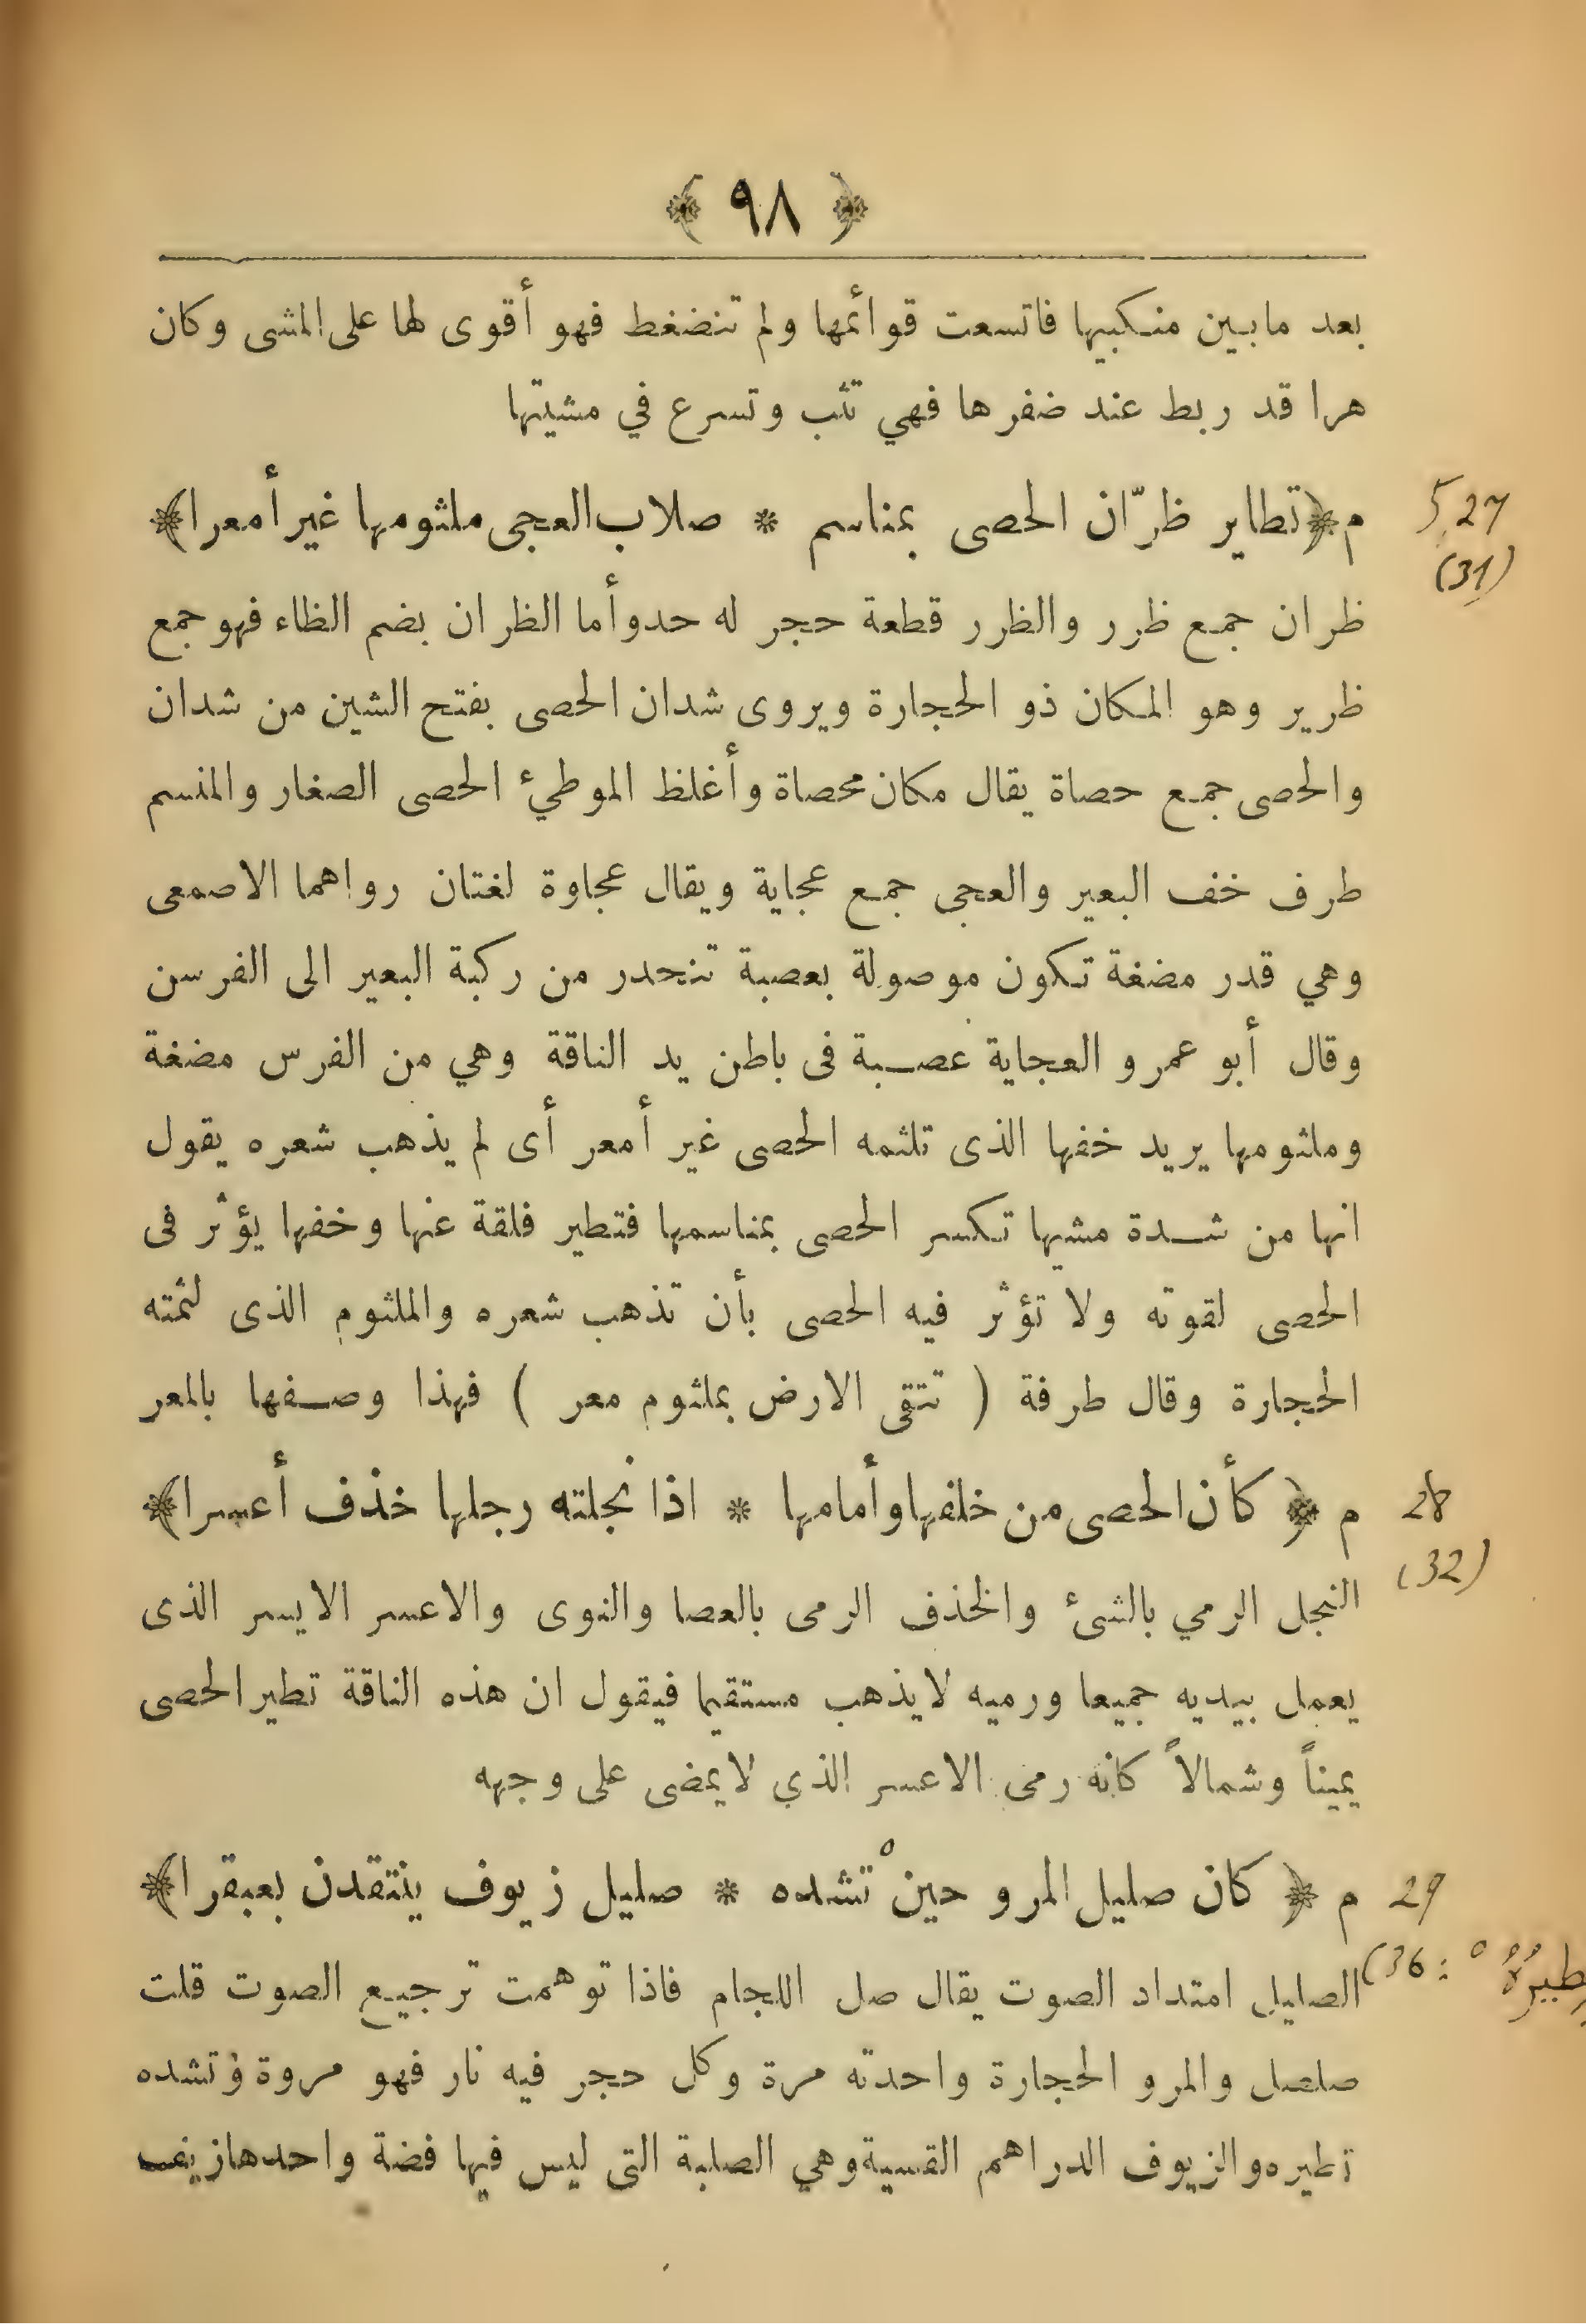 ﴿ ٩٨ ﴾
بعد مابين منكبيها فاتسعت قوأئمها ولم تنضغط فهو أقوى لها على المشى وكان
هرا قد ربط عند ضفرها فهي تثب وتسرع في مشيتها
م ﴿تطاير ظرّان الحصى بمناسم * صلاب العجى ملثومها غير أمعرا﴾
5 27
(31)
ظران جمع ظرر والظرر قطعة حجر له حدوأما الظران بضم الظاء فهو جمع
ظرير وهو المكان ذو الحجارة ويروى شدان الحصى بفتح الشين من شدان
والحصى جمع حصاة يقال مكان محصاة وأغلظ الموطيء الحصى الصغار والمنسم
طرف خف البعير والعجى جمع عجاية ويقال عجاوة لغتان رواهما الاصمعى
وهي قدر مضغة تكون موصولة بعصبة تنحدر من ركبة البعير الى الفرسن
وقال أبو عمرو العجاية عصبة فى باطن يد الناقة وهي من الفرس مضغة
وملثومها يريد خفها الذى تلثمه الحصى غير أمعر أى لم يذهب شعره يقول
انها من شدة مشيها تكسر الحصى بمناسمها فتطير فلقة عنها وخفها يؤثر فى
الحصى لقوته ولا تؤثر فيه الحصى بأن تذهب شعره والملثوم الذى لثمته
الحجارة وقال طرفة ( تتقى الارض بملثوم معر ) فهذا وصفها بالمعر
م ﴿ كأن الحصى من خلفها وأمامها * اذا نجلته رجلها خذف أعسرا﴾
28
(32)
النجل الرمي بالشىء والخذف الرمى بالعصا والنوى والاعسر الايسر الذى
يعمل بيديه جميعا ورميه لايذهب مستقيما فيقول ان هذه الناقة تطير الحصى
يميناً وشمالاً كانه رمى الاعسر الذي لايمضى على وجهه
م ﴿ كان صليل المرو حين تشده * صليل زيوف ينتقدن بعبقرا﴾
29
(36:
الصليل امتداد الصوت يقال صل اللجام فاذا توهمت ترجيع الصوت قلت
صلصل والمرو الحجارة واحدته مرة وكل حجر فيه نار فهو مروة وتشده
تطيره والزيوف الدراهم القسية وهي الصلبة التى ليس فيها فضة واحدها زيف